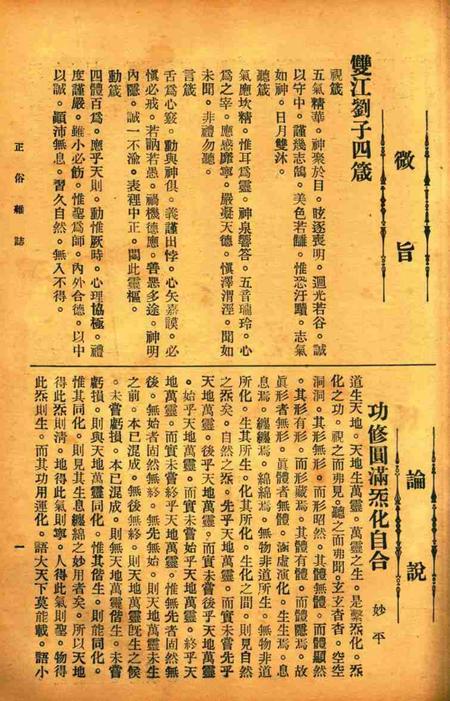 微旨
雙江劉子四箴
視箴
五氣精華。神聚於目。眩逐喪明。迴光若谷。誠
以守中。謹幾志鵠。美色若讎。惟恐汙黷。志氣
如神。日月雙沐。
聽箴
氣應坎精。惟耳爲靈。神泉響答。五音瓏玲。心
爲之宰。應感靡寧。嚴凝天德。慎澤渭涇。聞如
未聞。非禮勿聽。
言箴
舌爲心竅。動與神俱。義謹出悖。心矢嘉謨。必
愼必戒。若訥若愚。禍機德應。善惡多途。神明
內隱。誠一不渝。表裡中正。闢此靈樞。
動箴
四體百爲。應乎天則。動惟厥時。心理協極。禮
度謹嚴。雖小必飭。惟聖爲師。內外合德。以中
以誠。顚沛無息。習久自然。無入不得。
論說
功修圓滿炁化自合
妙平
道生天地。天地生萬靈。萬靈之生。是繫炁化。炁
化之功。視之而弗見。聽之而弗聞。玄玄杳杳。空空
洞洞。其形無形。而形昭然。其體無體。而體顯然
。其形有形。而形藏焉。其體有體。而體隱焉。故
眞形者無形。眞體者無體。涵虛演化。生生焉。息
息焉。纏纏焉。綿綿焉。無物非道所生。無物非道
所化。生其所生。化其所化。生化之間。則見自然
之炁矣。自然之炁。先乎天地萬靈。而實未嘗先乎
天地萬靈。後乎天地萬靈。而實未嘗後乎天地萬靈
。始乎天地萬靈。而實未嘗始乎天地萬靈。終乎天
地萬靈。而實未嘗終乎天地萬靈。惟無先者固然無
後。無始者固然無終。無先無始。則天地萬靈未生
之前。本已混成。無後無終。則天地萬靈旣生之候
。未嘗虧損。本已混成。則無天地萬靈偕生。未嘗
虧損。則與天地萬靈同化。惟其偕生。則能同化。
惟其同化。則見其生息纏綿之妙用者矣。所以天地
得此炁則清。地得此氣則寧。人得此氣則聖。物得
此炁則生。而其功用運化。語大天下莫能載。語小
正俗雜誌
一